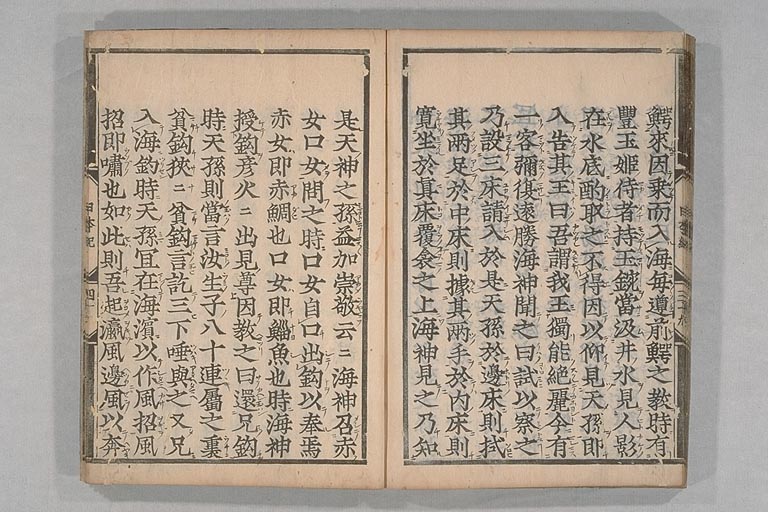 鰐來因乘而入海每遵前鰐之教時有
豐玉姬侍者持玉鋺當汲井水見人影
在水底酌取之不得因以仰見天孫即
入告其王曰吾謂我王獨能絕麗今有
一客彌復遠勝海神聞之曰試以察之
乃設三床請入於是天孫於邊床則拭
其兩足於中床則據其兩手於內床則
寬坐於真床覆衾之上海神見之乃知
是天神之孫益加崇敬云二海神召赤
女口女問之時口女自口出鈎以奉焉
赤女即赤鯛也口女即鯔魚也時海神
授鈎彥火二出見尊因教之曰還兄鈎
時天孫則當言汝生子八十連屬之裏
貧鈎狹二貧鈎言訖三下唾與之又兄
入海釣時天孫宜在海濱以作風招風
招即嘯也如此則吾起瀛風邊風以奔
日本紀
四十